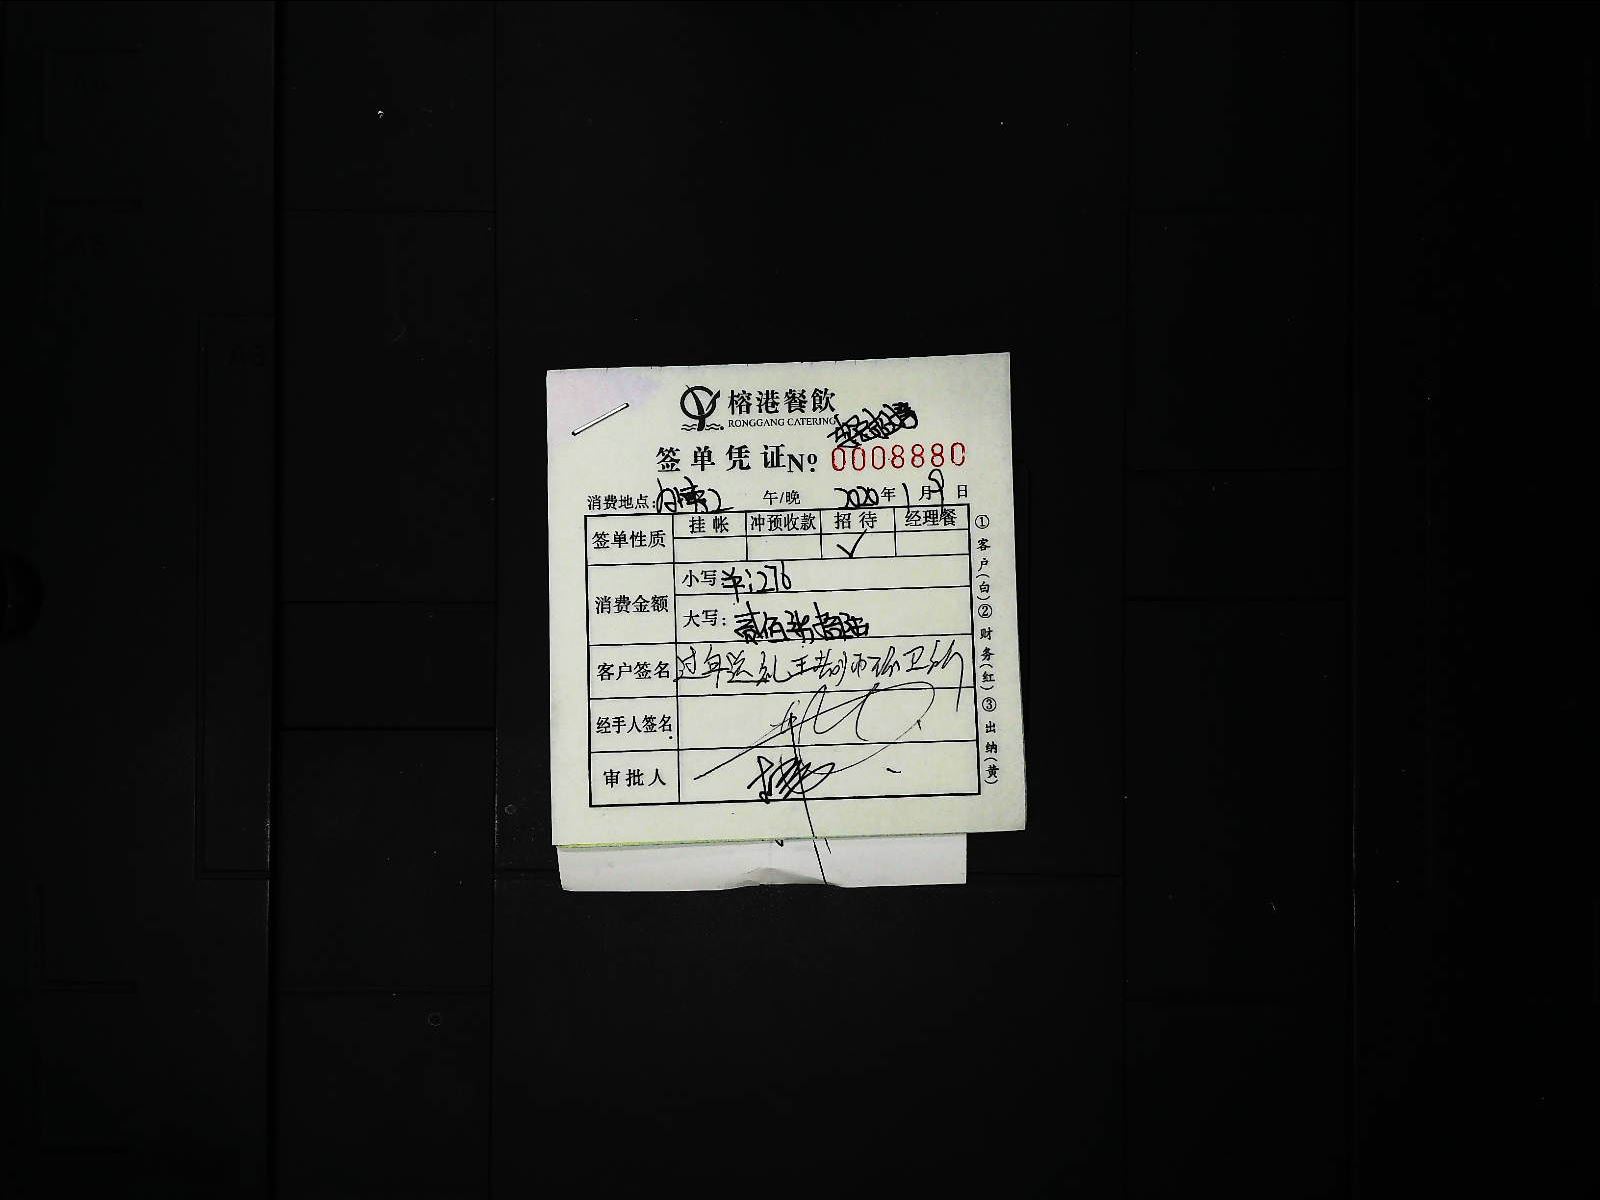 榕港餐飲
RONGGANG CATERING
签单凭证 № 0008880
消费地点: 午/晚 2020年1月9日
签单性质 挂帐 冲预收款 招待 经理餐
✓
消费金额 小写: 276
大写: 贰佰
客户签名 过年送礼
经手人签名
审批人
①客户(白)②财务(红)③出纳(黄)